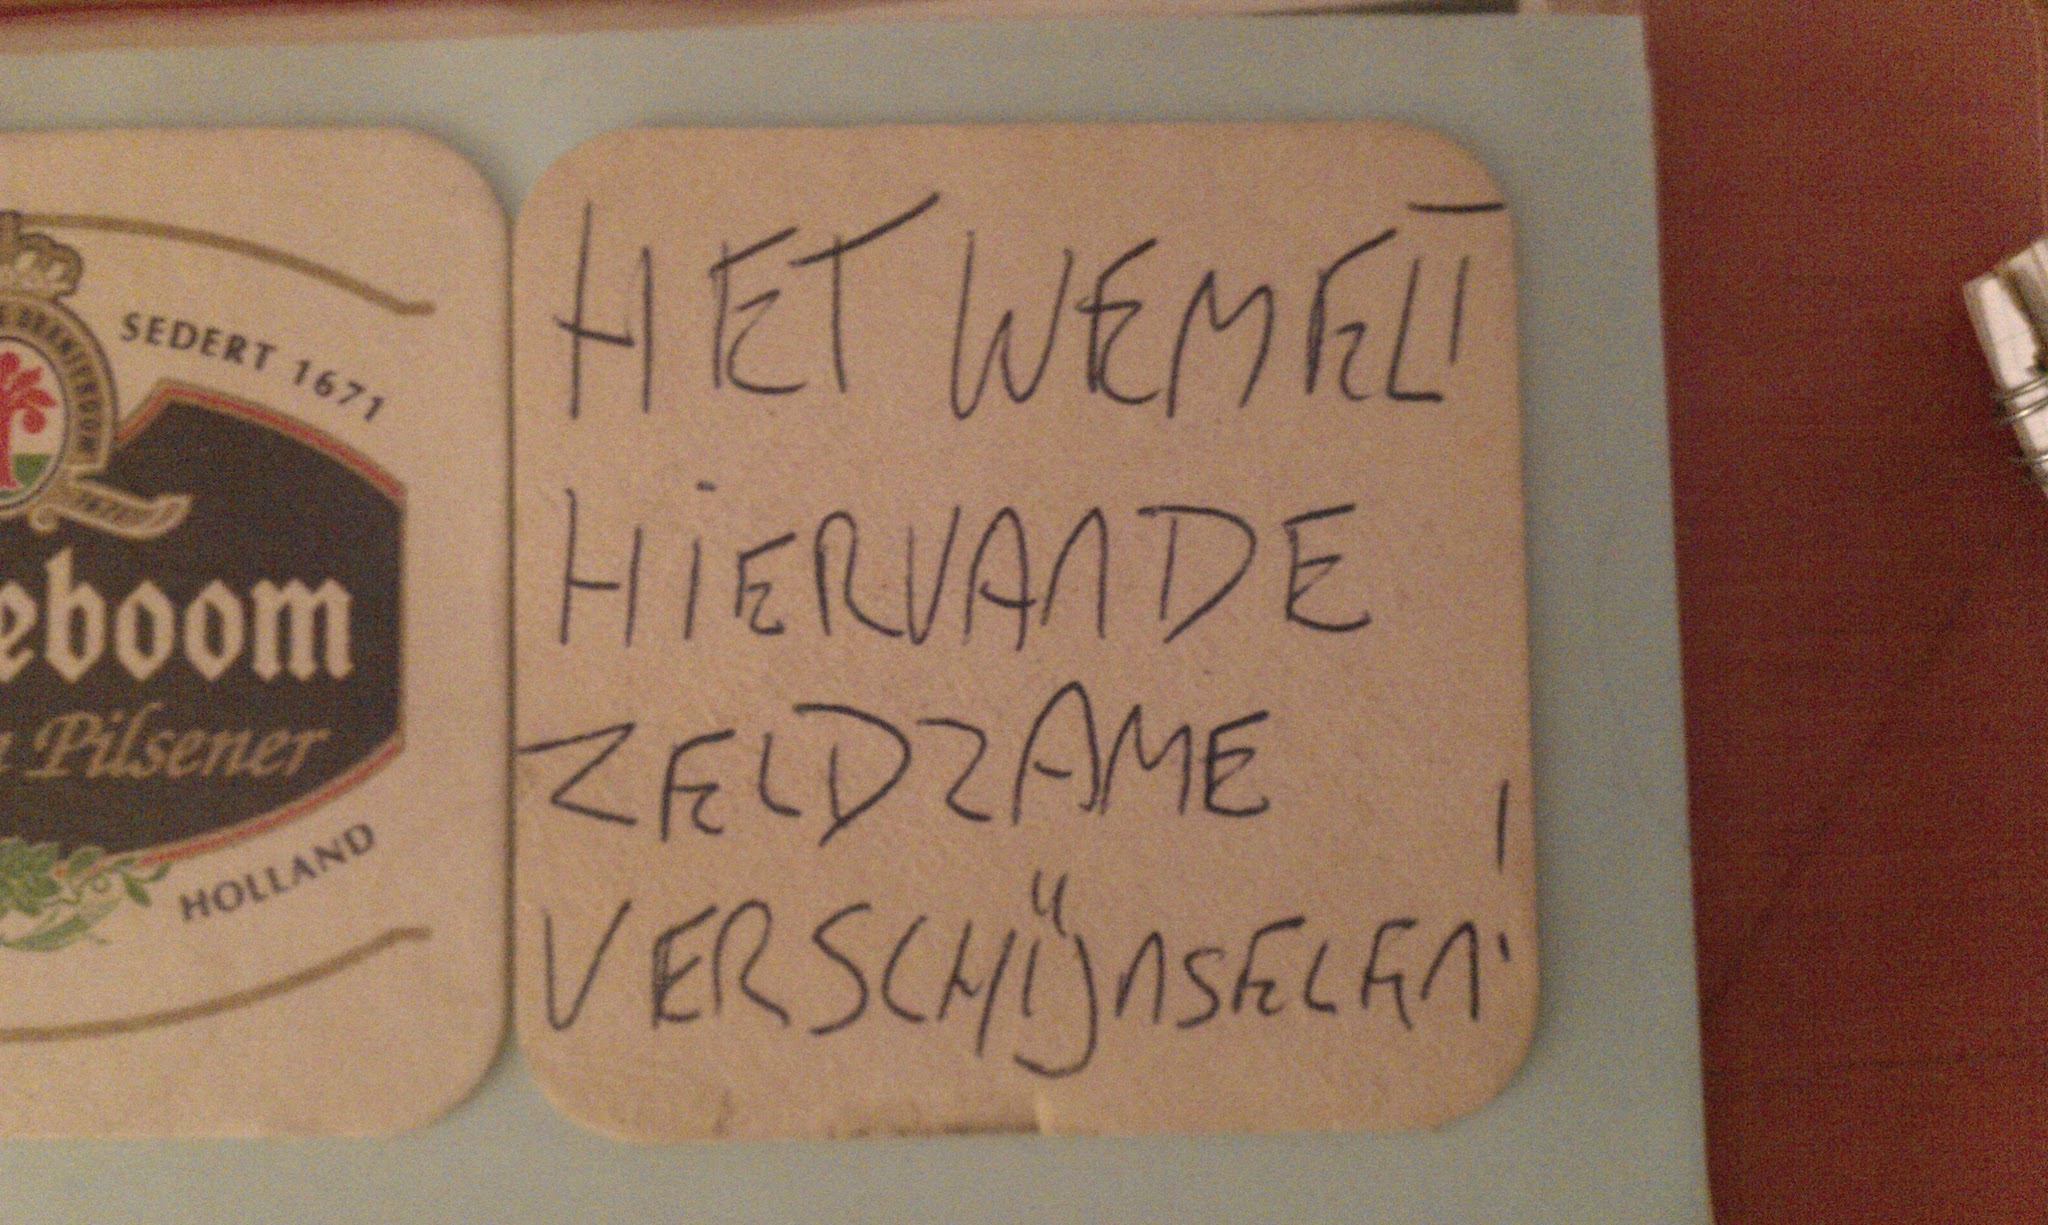 SEDERT 1671
eboom
Pilsener
HOLLAND
HET WEMELT
HIER VAN DE
ZELDZAME
VERSCHIJNSELEN!